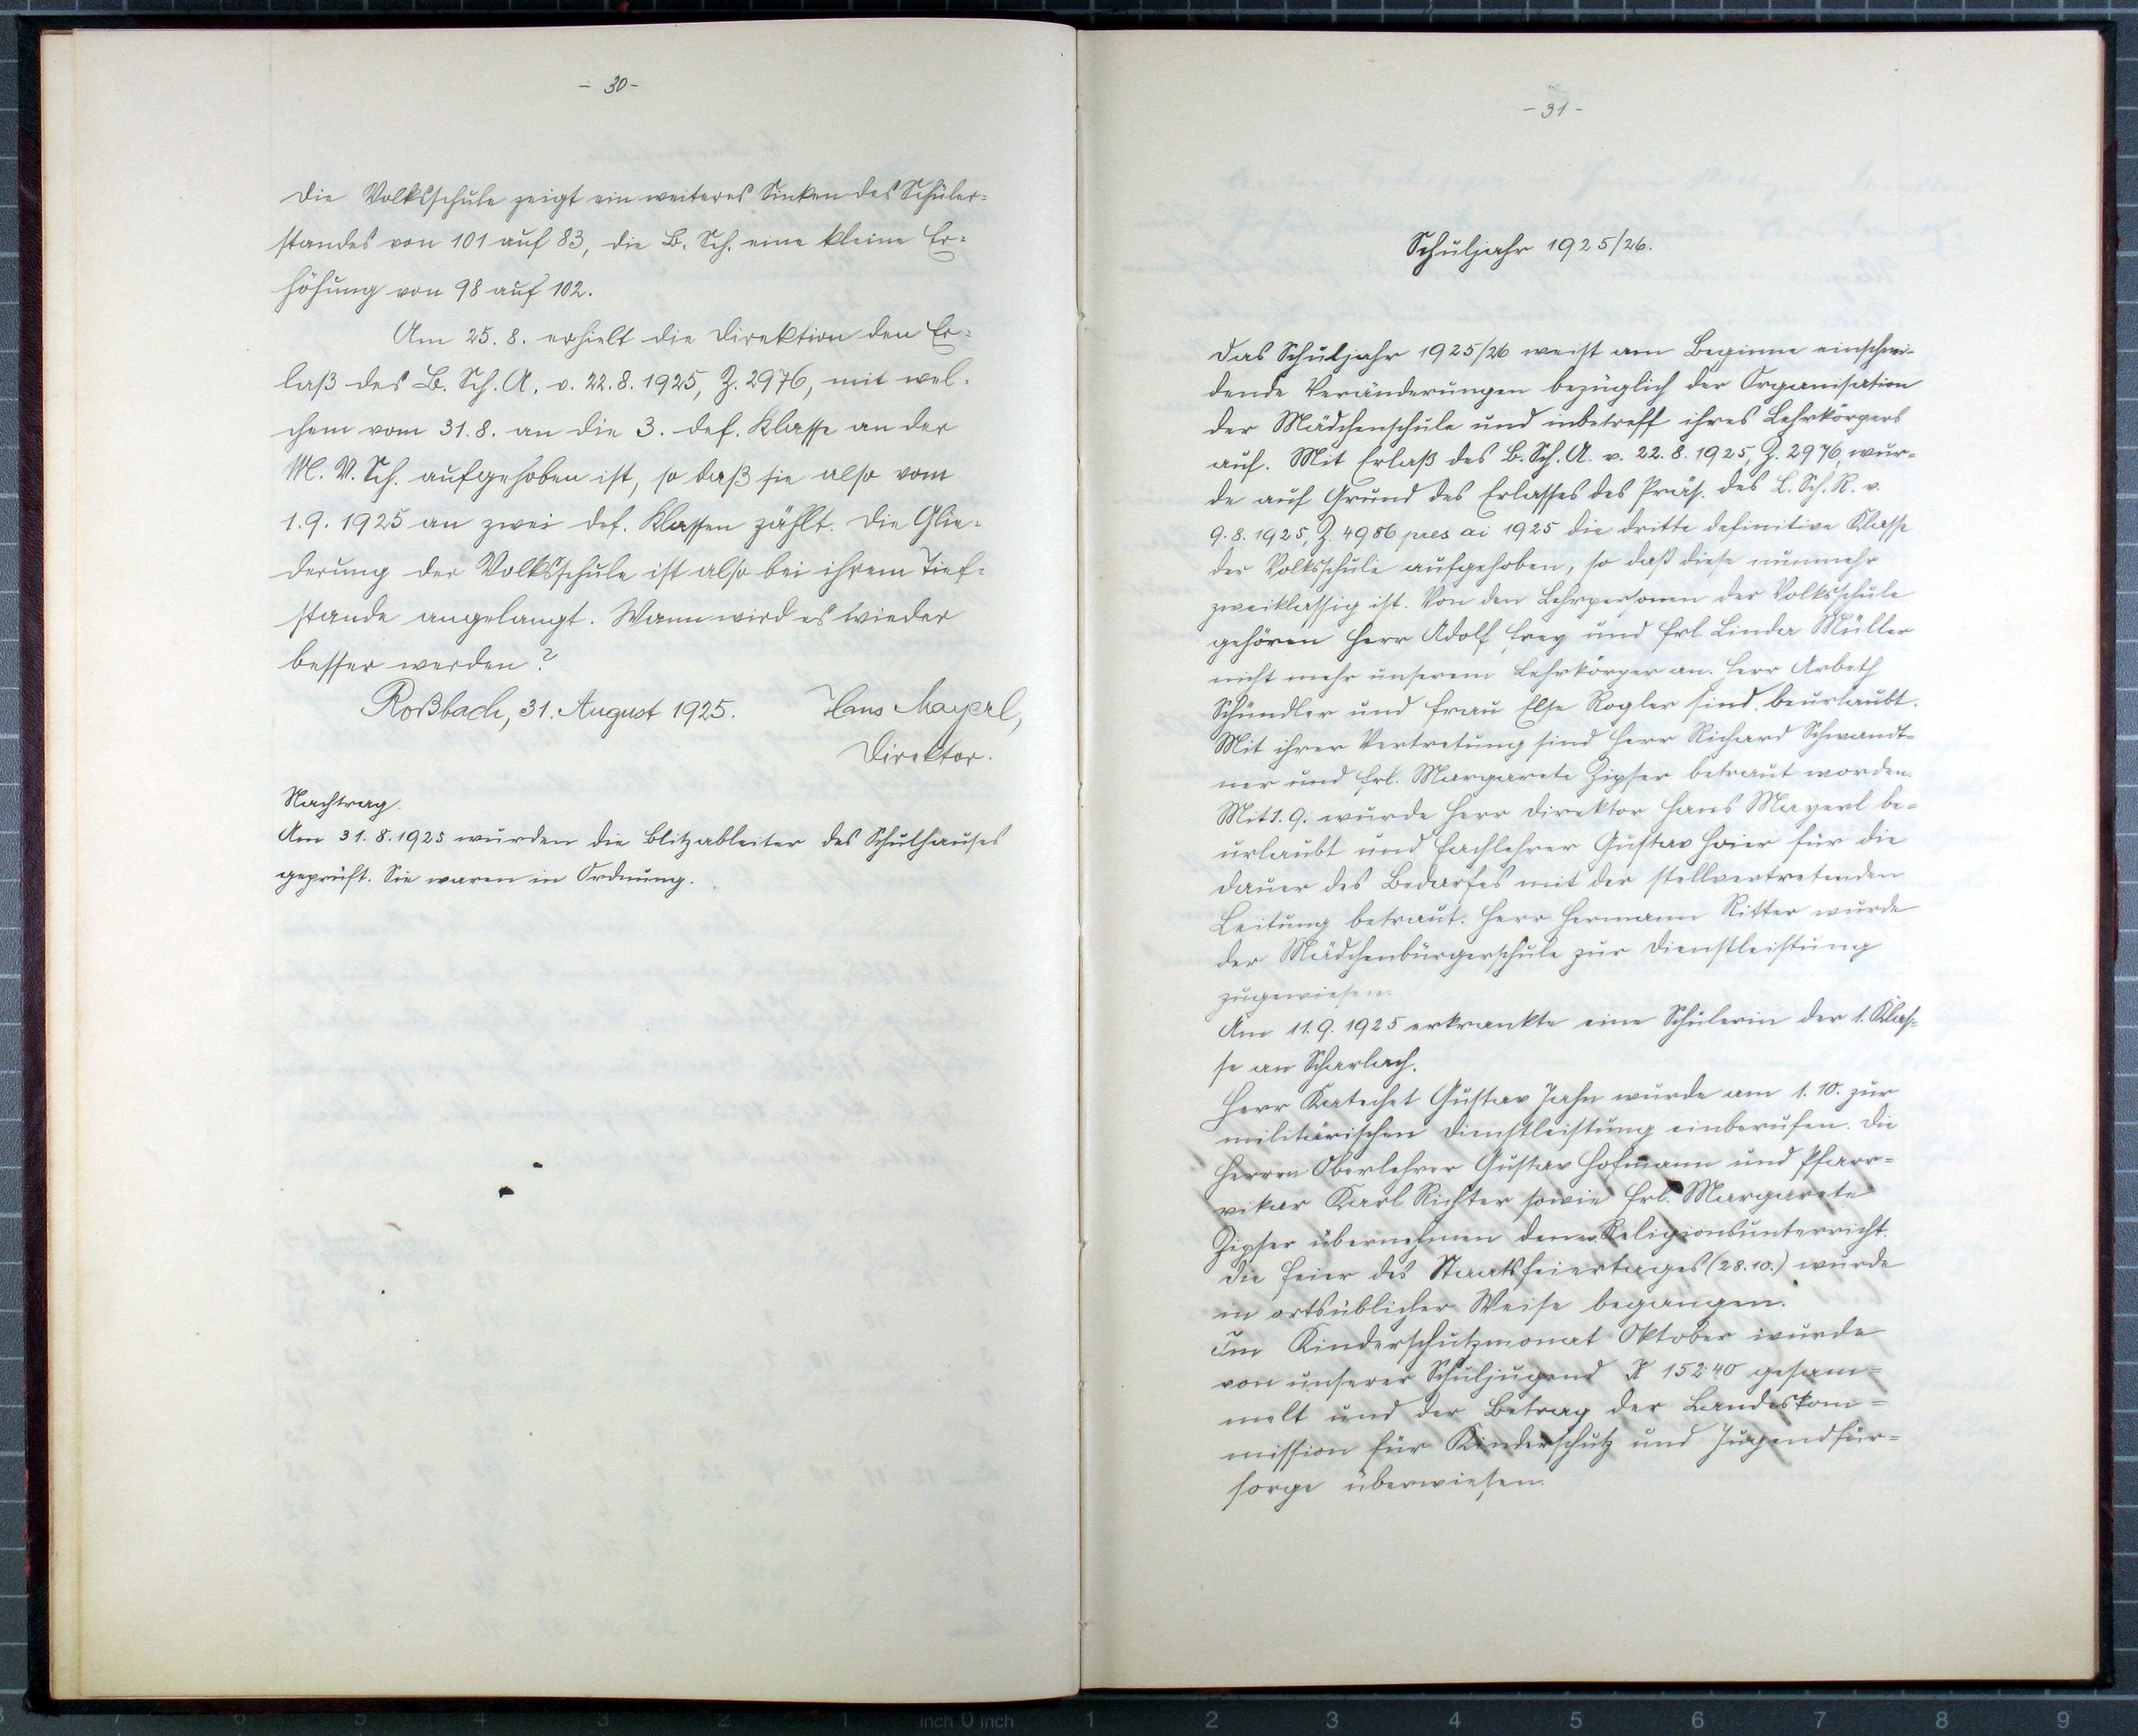 - 30 -
Die Volksschule zeigt ein weiteres Sinken des Schüler-
standes von 101 auf 83, die B. Sch. eine kleine Er-
höhung von 98 auf 102.
Am 25. 8. erhielt die Direktion den Er-
laß des B. Sch. A. v. 22. 8. 1925, Z. 2976, mit wel-
chem vom 31. 8. an die 3. def. Klasse an der
M. V. Sch. aufgehoben ist, so daß sie also vom
1. 9. 1925 an zwei def. Klassen zählt. Die Glie-
derung der Volksschule ist also bei ihrem Tief-
stande angelangt. Wann wird es wieder
besser werden?
Roßbach, 31. August 1925. Hans Mayerl,
Direktor.
Nachtrag.
Am 31. 8. 1925 wurden die Blitzableiter des Schulhauses
geprüft. Sie waren in Ordnung.
- 31 -
Schuljahr 1925/26.
Das Schuljahr 1925/26 weist am Beginne einschnei-
dende Veränderungen bezüglich der Organisation
der Mädchenschule und inbetreff ihres Lehrkörpers
auf. Mit Erlaß des B. Sch. A. v. 22. 8. 1925, Z. 2976, wur-
de auf Grund des Erlasses des Präs. des L. Sch. R. v.
9. 8. 1925, Z. 4986 pres ai 1925 die dritte definitive Klasse
der Volksschule aufgehoben, so daß diese nunmehr
zweiklassig ist. Von den Lehrpersonen der Volksschule
gehören Herr Adolf Frey und Frl. Linda Müller
nicht mehr unserem Lehrkörper an. Herr
Schindler und Frau Else Rogler sind beurlaubt.
Mit ihrer Vertretung sind Herr Richard Schwandt-
ner und Frl. Margarete Zipser betraut worden.
Mit 1. 9. wurde Herr Direktor Hans Mayerl be-
urlaubt und Fachlehrer Gustav Hoier für die
Dauer des Bedarfes mit der stellvertretenden
Leitung betraut. Herr Hermann Ritter wurde
der Mädchenbürgerschule zur Dienstleistung
zugewiesen.
Am 11. 9. 1925 erkrankte eine Schülerin der 1. Klas-
se an Scharlach.
Herr Katechet Gustav Jahn wurde am 1. 10. zur
militärischen Dienstleistung einberufen. Die
Herren Oberlehrer Gustav Hofmann und Pfarr-
vikar Karl Richter sowie Frl. Margarete
Zipser übernehmen den Religionsunterricht.
Die Feier des Staatsfeiertages (28. 10.) wurde
in ortsüblicher Weise begangen.
Im Kinderschutzmonat Oktober wurde
von unserer Schuljugend K 152·40 gesam-
melt und der Betrag der Landeskom-
mission für Kinderschutz und Jugendfür-
sorge überwiesen.